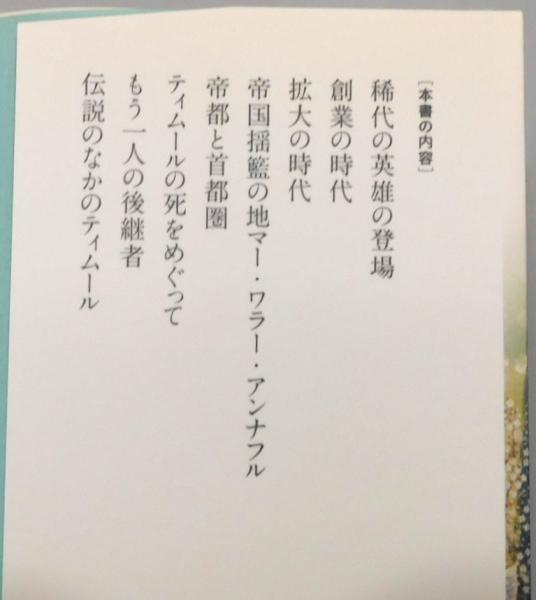 [本書の内容]
稀代の英雄の登場
創業の時代
拡大の時代
帝国揺籃の地マー・ワラー・アンナフル
帝都と首都圏
ティムールの死をめぐって
もう一人の後継者
伝説のなかのティムール